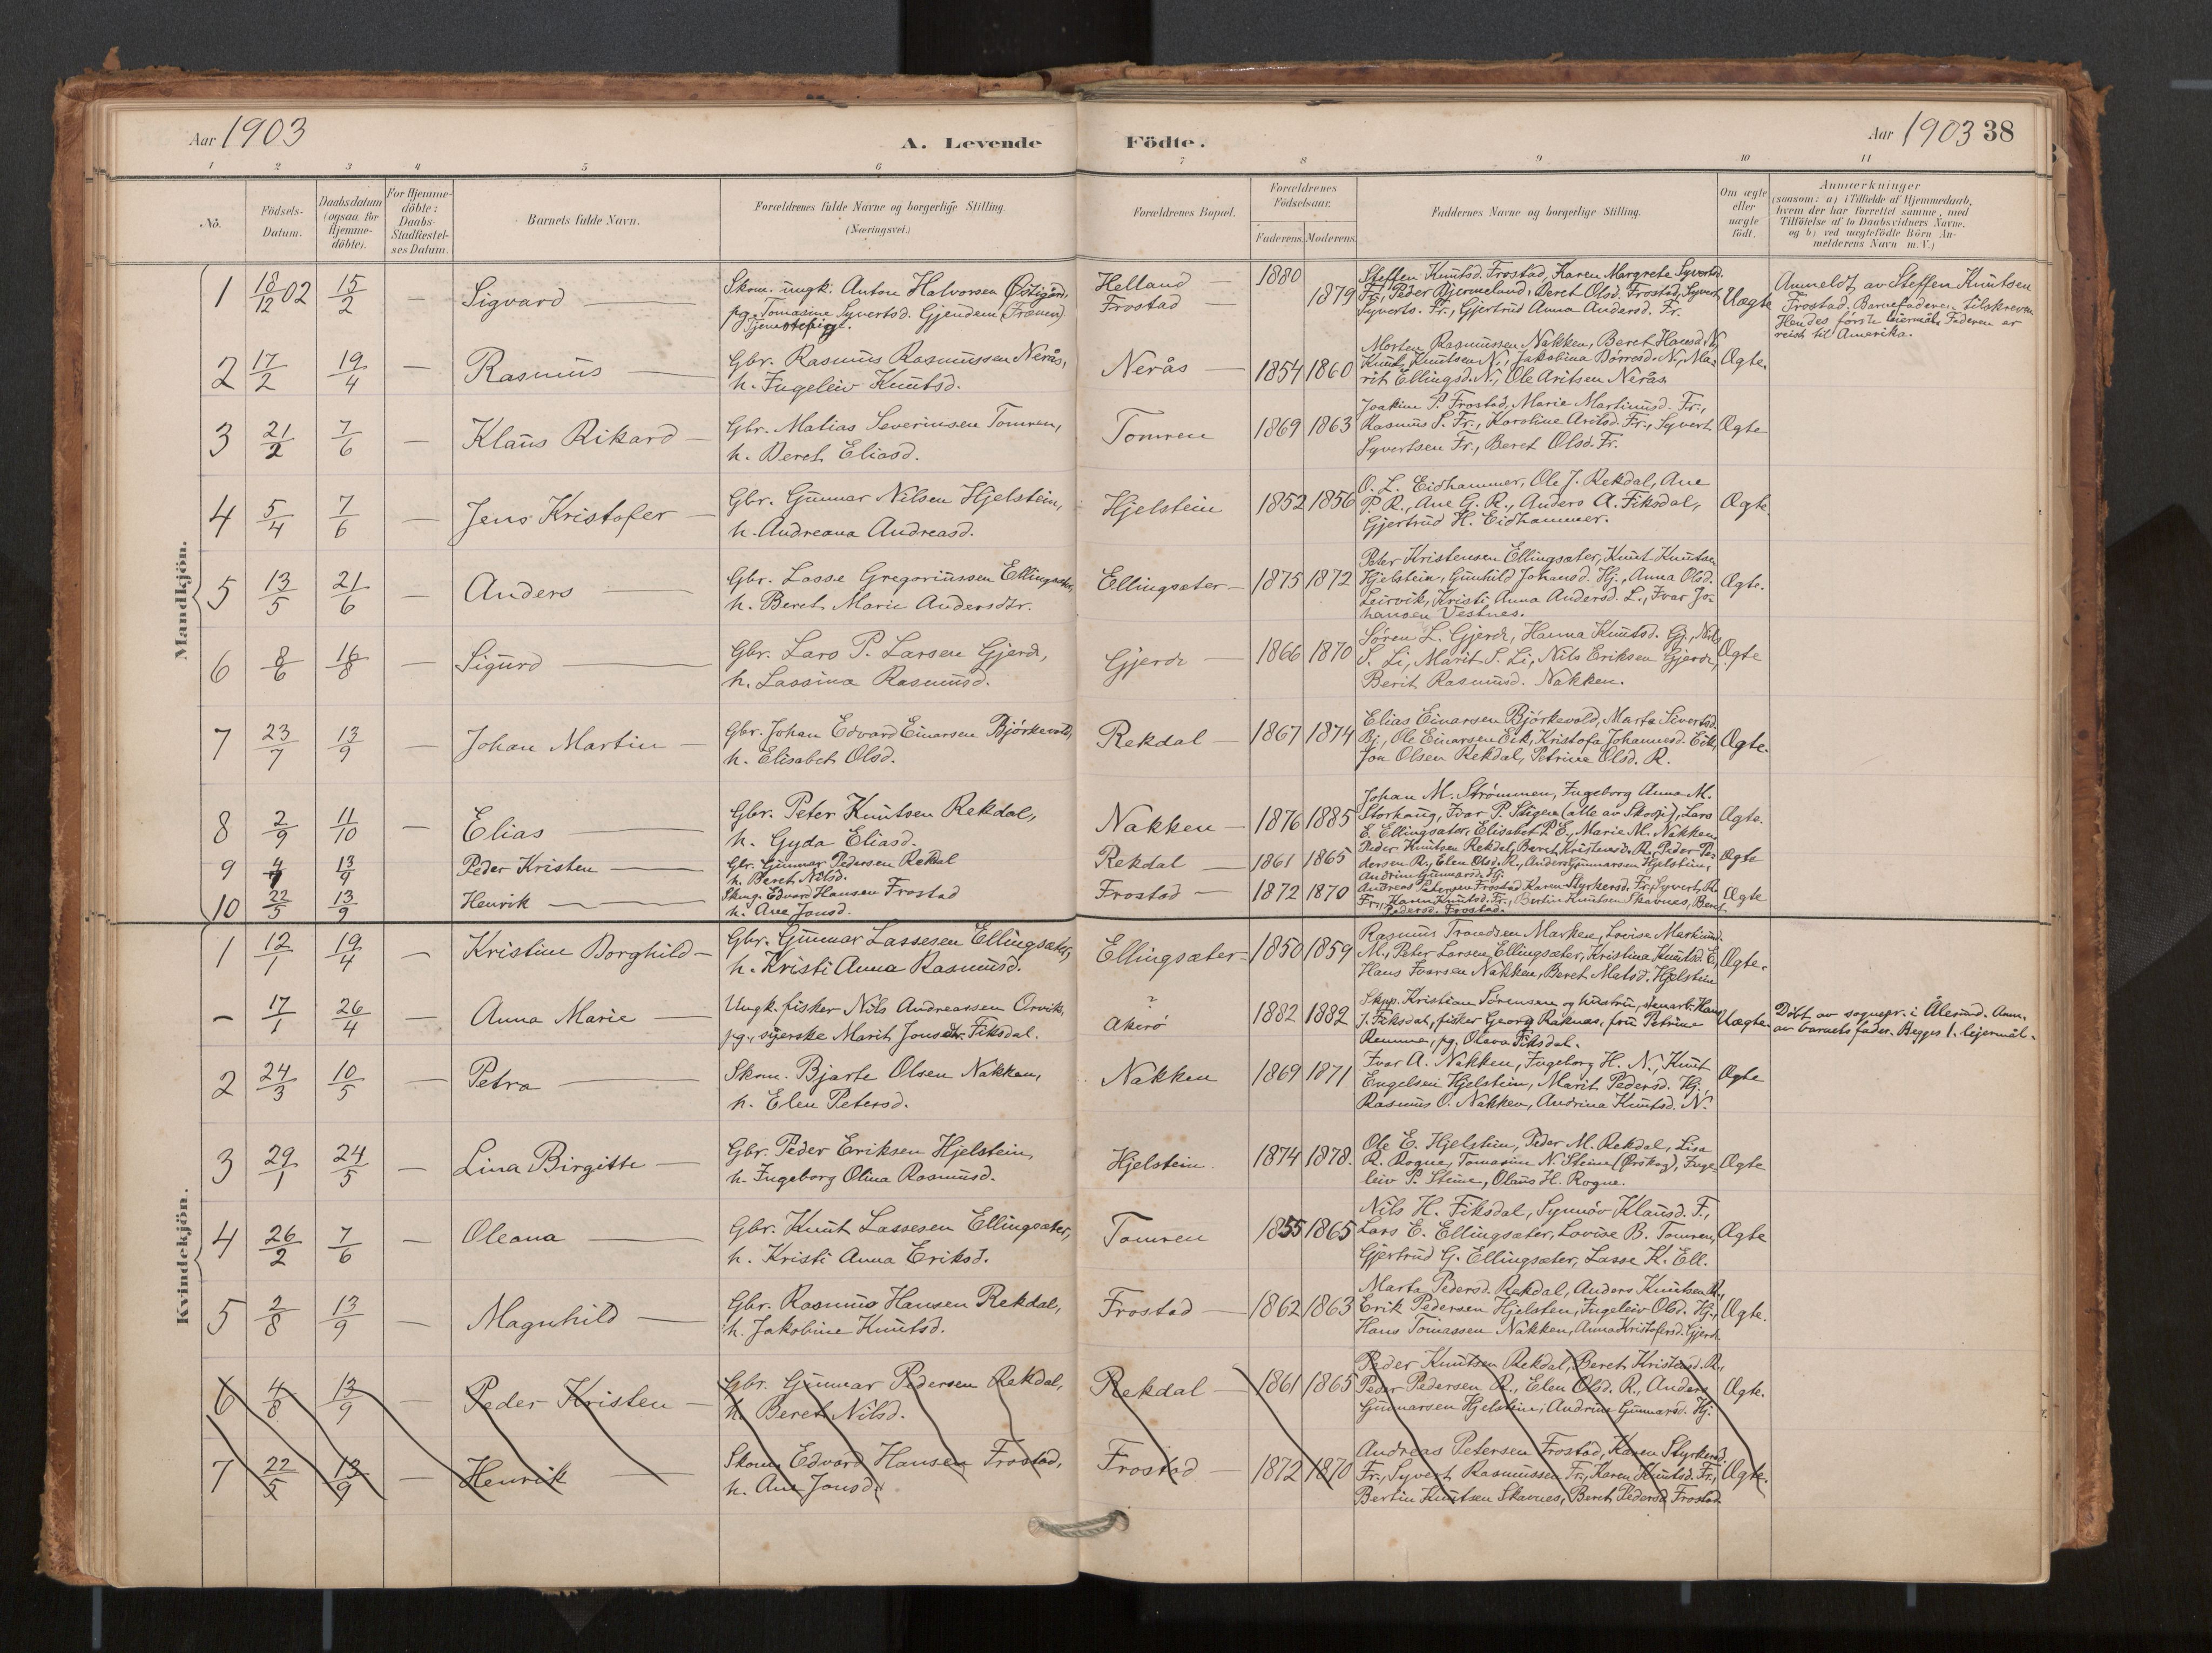 Aar 1903
A. Levende
Födte.
Aar 1903 38
1 2 3 4 5 6 7 8 9 10 11
No.
Födsels-Datum.
Daabsdatum (ogsaa for Hjemme-döbte).
For Hjemme-döbte: Daabs-Stadfæstel-ses Datum.
Barnets fulde Navn.
Forældrenes fulde Navne og borgerlige Stilling.
(Næringsvei.)
Forældrenes Bopæl.
Forældrenes Födselsaar.
Faderens. Moderens.
Faddernes Navne og borgerlige Stilling.
Om ægte eller uægte födt.
Anmærkninger
(saasom: a) i Tilfælde af Hjemmedaab,
hvem der har forrettet samme, med
Tilföielse af to Daabsvidners Navne,
og b) ved uægtefödte Börn An-
melderens Navn m. V.)
Mandkjön.
1 18/12 02 15/2 — Sigvard
Skom. ungk. Anton Halvorsen Östigård,
pg. Tomasine Syvertsd. Gjendem (Frænen)
Tjenestepige.
Helland
Frostad
1880
1879
Steffen Knutsd. Frostad, Karen Margrete Syvertsd.
Fr., Peder Bjermeland, Beret Olsd. Frostad, Syvert
Syverts. Fr., Gjertrud Anna Andersd. Fr.
Uægte
Anmeldt av Steffen Knutsen
Frostad. Barnefaderen tilskreven
Hendes første leiermål. Faderen er
reist til Amerika.
2 17/2 19/4 — Rasmus
Gbr. Rasmus Rasmussen Nerås,
h. Ingeleiv Knutsd.
Nerås 1854 1860
Morten Rasmussen Nakken, Beret Hansd. N.,
Knut Knutsen N., Jakobina Dørresd. N., Ma-
rit Ellingsd. N., Ole Aritsen Nerås.
Ægte.
3 21/2 7/6 — Klaus Rikard
Gbr. Matias Severinsen Tomren,
h. Beret Eliasd.
Tomren 1869 1863
Joakim P. Frostad, Marie Martinusd. Fr.,
Rasmus S. Fr., Karoline Aritsd. Fr., Syvert
Syvertsen Fr., Beret Olsd. Fr.
Ægte
4 5/4 7/6 — Jens Kristofer
Gbr. Gunnar Nilsen Hjelstein,
h. Andreana Andreasd.
Hjelstein 1852 1856
O. L. Eidhammer, Ole J. Rekdal, Ane
P. R., Ane G. R., Anders A. Fiksdal,
Gjertrud H. Eidhammer.
Ægte.
5 13/5 21/6 — Anders
Gbr. Lasse Gregoriussen Ellingsæter,
h. Beret Marie Andersdtr.
Ellingsæter 1875 1872
Peter Kristensen Ellingsæter, Knut Knutsen
Hjelstein, Gunhild Johansd. Hj., Anna Olsd.
Leirvik, Kristi Anna Andersd. L., Ivar Jo-
hansen Vestnes.
Ægte.
6 8/6 16/8 — Sigurd
Gbr. Lars P. Larsen Gjerde,
h. Lassina Rasmusd.
Gjerde 1866 1870
Søren L. Gjerde, Hanna Knutsd. Gj., Nils
S. Li, Marit S. Li, Nils Eriksen Gjerde,
Berit Rasmusd. Nakken.
Ægte
7 23/7 13/9 — Johan Martin
Gbr. Johan Edvard Einarsen Bjørkevold,
h. Elisabet Olsd.
Rekdal 1867 1874
Elias Einarsen Bjørkevold, Marta Sivertsd.
Bj., Ole Einarsen Eik, Kristofa Johannsd. Eik,
Jon Olsen Rekdal, Petrine Olsd. R.
Ægte.
8 2/9 11/10 — Elias
Gbr. Peter Knutsen Rekdal,
h. Gyda Eliasd.
Nakken 1876 1885
Johan M. Strømmen, Ingeborg Anna M.
Storhaug, Ivar P. Stigen (alle av Skodje), Lars
E. Ellingsæter, Elisabet P. E., Marie M. Nakken
Ægte.
9 4 13/9 Peder Kristen
Gbr. Gunnar Pedersen Rekdal
h. Beret Nilsd.
Rekdal 1861 1865
Peder Knutsen Rekdal, Beret Kristensd. R., Peder Pe-
dersen R., Elen Olsd. R., Anders Gunnarsen Hjelstein,
Andrine Gunnarsd. Hj.
Ægte
10 22/5 13/9 Henrik
Skmg. Edvard Hansen Frostad
h. Ane Jonsd.
Frostad 1872 1870
Andreas Petersen Frostad, Karen Styrkersd. Fr., Syvert R.
Fr., Karen Knutsd. Fr., Bertin Knutsen Skavnes, Beret
Pedersd. Frostad.
Ægte
Kvindekjön.
1 12/1 19/4 — Kristine Borghild
Gbr. Gunnar Lassesen Ellingsæter,
h. Kristi Anna Rasmusd.
Ellingsæter 1850 1859
Rasmus Trondsen Marken, Lovise Martinusd.
M., Peter Larsen Ellingsæter, Kristina Knutsd. E.,
Hans Ivarsen Nakken, Beret Matsd. Hjelstein
Ægte.
— 17/1 26/4 — Anna Marie
Ungk. fisker Nils Andreassen Orvik,
pg., syerske Marit Jonsdtr. Fiksdal.
?
Akerø 1882 1882
Skpp. Kristian Sørensen og hustru, stenarb. Hans
J. Fiksdal, fisker Georg Raknas, fru Petrine
Remme, pg. Olava Fiksdal.
Uægte.
Döbt av sognepr. i Ålesund. Anm.
av barnets fader. Begges 1. lejermål.
2 24/3 10/5 — Petra
Skom. Bjarte Olsen Nakken,
h. Elen Petersd.
Nakken 1869 1871
Ivar A. Nakken, Ingeborg H. N., Knut
Engelsen Hjelstein, Marit Pedersd. Hj.,
Rasmus O. Nakken, Andrina Knutsd. N.
Ægte
3 29/1 24/5 — Lina Birgitte
Gbr. Peder Eriksen Hjelstein,
h. Ingeborg Olina Rasmusd.
Hjelstein 1874 1878.
Ole E. Hjelstein, Peder M. Rekdal, Lisa
R. Rogne, Tomasine N. Steine (Ørskog), Inge-
leiv P. Steine, Olaus H. Rogne.
Ægte
4 26/2 7/6 — Oleana
Gbr. Knut Lassesen Ellingsæter,
h. Kristi Anna Eriksd.
Tomren 1855 1865
Nils H. Fiksdal, Synnøv Klausd. F.,
Lars E. Ellingsæter, Lovise B. Tomren,
Gjertrud G. Ellingsæter, Lasse K. Ell.
Ægte
5 2/8 13/9 — Magnhild
Gbr. Rasmus Hansen Rekdal,
h. Jakobine Knutsd.
Frostad 1862 1863
Marta Pedersd. Rekdal, Anders Knutsen R.,
Erik Pedersen Hjelsten, Ingeleiv Olsd. Hj.,
Hans Tomassen Nakken, Anna Kristofersd. Gjerde
Ægte.
6 4/8 13/9 — Peder Kristen
Gbr. Gunnar Pedersen Rekdal,
h. Beret Nilsd.
Rekdal 1861 1865
Peder Knutsen Rekdal, Beret Kristensd. R.,
Peder Pedersen R., Elen Olsd. R., Anders
Gunnarsen Hjelstein, Andrine Gunnarsd. Hj.
Ægte.
7 22/5 13/9 — Henrik
Skom. Edvard Hansen Frostad,
h. Ane Jonsd.
Frostad 1872 1870
Andreas Petersen Frostad, Karen Styrkersd.
Fr., Syvert Rasmussen Fr., Karen Knutsd. Fr.,
Bertin Knutsen Skavnes, Beret Pedersd. Frostad.
Ægte.